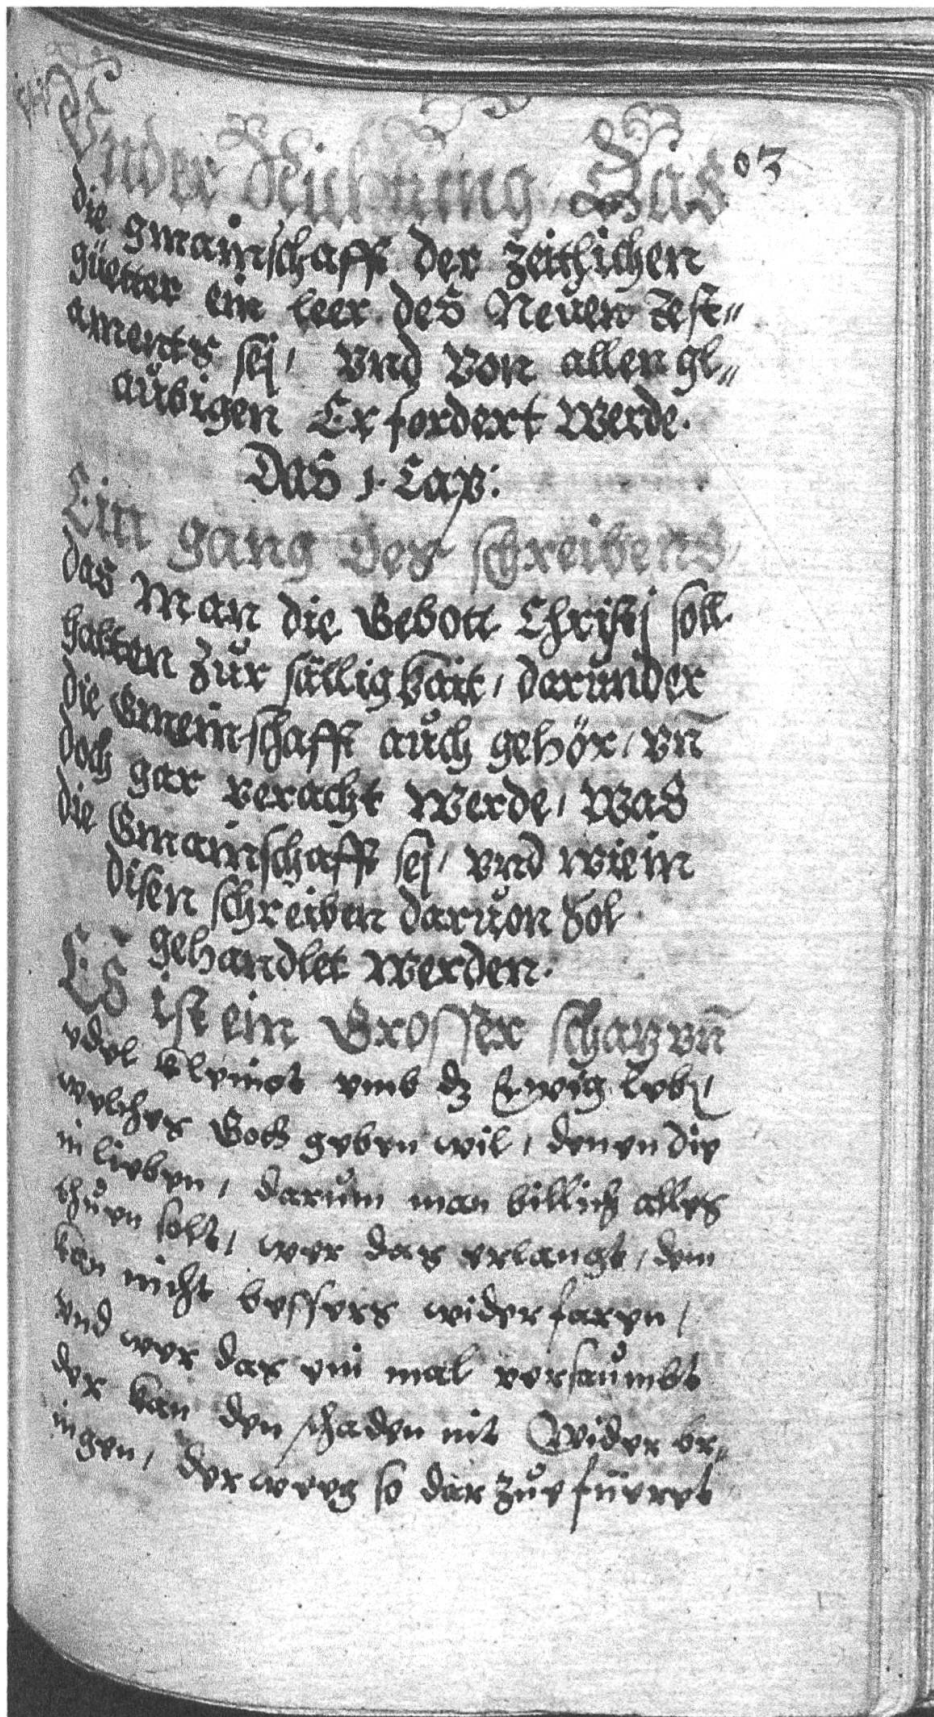 Vnder Richtung, Das 03
die gmainschafft der zeitlichen
güetter ein leer des Neuen Test„
aments sej, Vnd Von allen gl„
aůbigen Erfordert Werde.
DAS 1. Cap:
Ein gang des schreibens,
das Man die Gebott Christj soll
halten Zůr sälligkait, darůnder
die Gmeinschafft aůch gehör, vn̄
doch gar veracht Werde, Was
die Gmainschafft sej, vnd wie in
disen schreiben daruon Sol
gehandlet Werden.
ES ist ein Grosser schatz vn̄
edel kleinot vmb dz Ewig leb̄,
welches Gott geben wil, denen die
in lieben, darům man billich alles
thůen solt, wer das erlangt, dem
kan nicht bessers widerfaren,
vnd wer das ein mal versaůmbt
der kan den schaden nit Wider br„
ingen, der weeg so dar zůe füeret